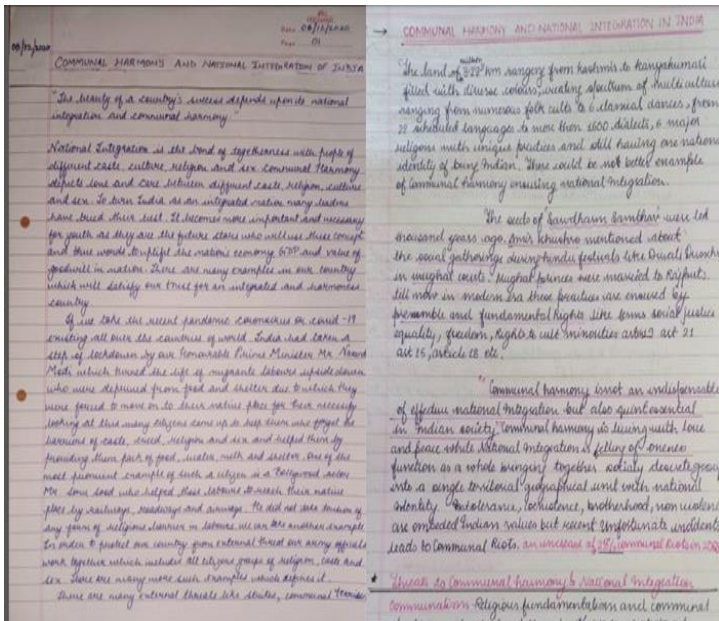 Date 08/12/2020
Page 01
08/12/2020
COMMUNAL HARMONY AND NATIONAL INTEGRATION OF INDIA
"The beauty of a country's success depends upon its national
integration and communal harmony."
National Integration is the bond of togetherness with people of
different caste, culture, religion and sex. Communal Harmony
depicts love and care between different caste, religion, culture
and sex. To turn India as an integrated nation many leaders
have tried their best. It becomes more important and necessary
for youth as they are the future stars who will use these concept
and thus words to uplift the nation's economy, GDP and value of
goodwill in nation. There are many examples in our country
which will satisfy our trust for an integrated and harmonious
country.
If we take the recent pandemic coronavirus or covid-19
existing all over the countries of world. India had taken a
step of lockdown by our Honourable Prime Minister Mr. Narend
Modi which turned the life of migrants labours upside down
who were deprived from food and shelter due to which they
were forced to move on to their native place for their necessity
looking at this many citizens came up to help them who forget the
barriers of caste, creed, religion and sex and helped them by
providing them pack of food, water, milk and shelter. One of the
most prominent example of such a citizen is a Bollywood actor
Mr. Sonu Sood who helped these labours to reach their native
place by railways, roadways and airways. He did not see
any form of religious barrier in labours. We can see another example
In order to protect our country from external threat our army officials
work together which included all citizens groups of religion, caste and
sex. There are many more such examples which defines it.
There are many external threats like strikes, communal
→ COMMUNAL HARMONY AND NATIONAL INTEGRATION IN INDIA
The land of 3.28 million km ranging from Kashmir to Kanyakumari
filled with diverse colours, creating spectrum of multiculture
ranging from numerous folk cults to 6 classical dances, from
22 scheduled languages to more than 1600 dialects, 6 major
religions with unique practices and still having one national
identity of being Indian. There could be not better example
of Communal harmony ensuring national integration.
The seeds of Sawdharm Sambhav were led
thousand years ago. Amir Khushro mentioned about
the social gatherings during hindu festivals like Diwali
in mughal courts. Mughal princes were married to Rajputs.
till now in modern era these practices are ensured by
preamble and fundamental Rights like terms social justice
equality, freedom, Rights to cult minorities art 21
art 15, article 18 etc.
"Communal harmony is not an indispensable
of effective national integration but also quintessential
in Indian society." Communal harmony is living with love
and peace while National Integration is felling of oneness
function as a whole bringing together society
into a single territorial geographical unit with national
identity. Intolerance, brotherhood, non violence
are embeded Indian values but recent unfortunate incidents
leads to Communal Riots. an increase of 28% communal Riots in
* Threats to Communal harmony & National Integration
Communalism - Religious fundamentalism and communal